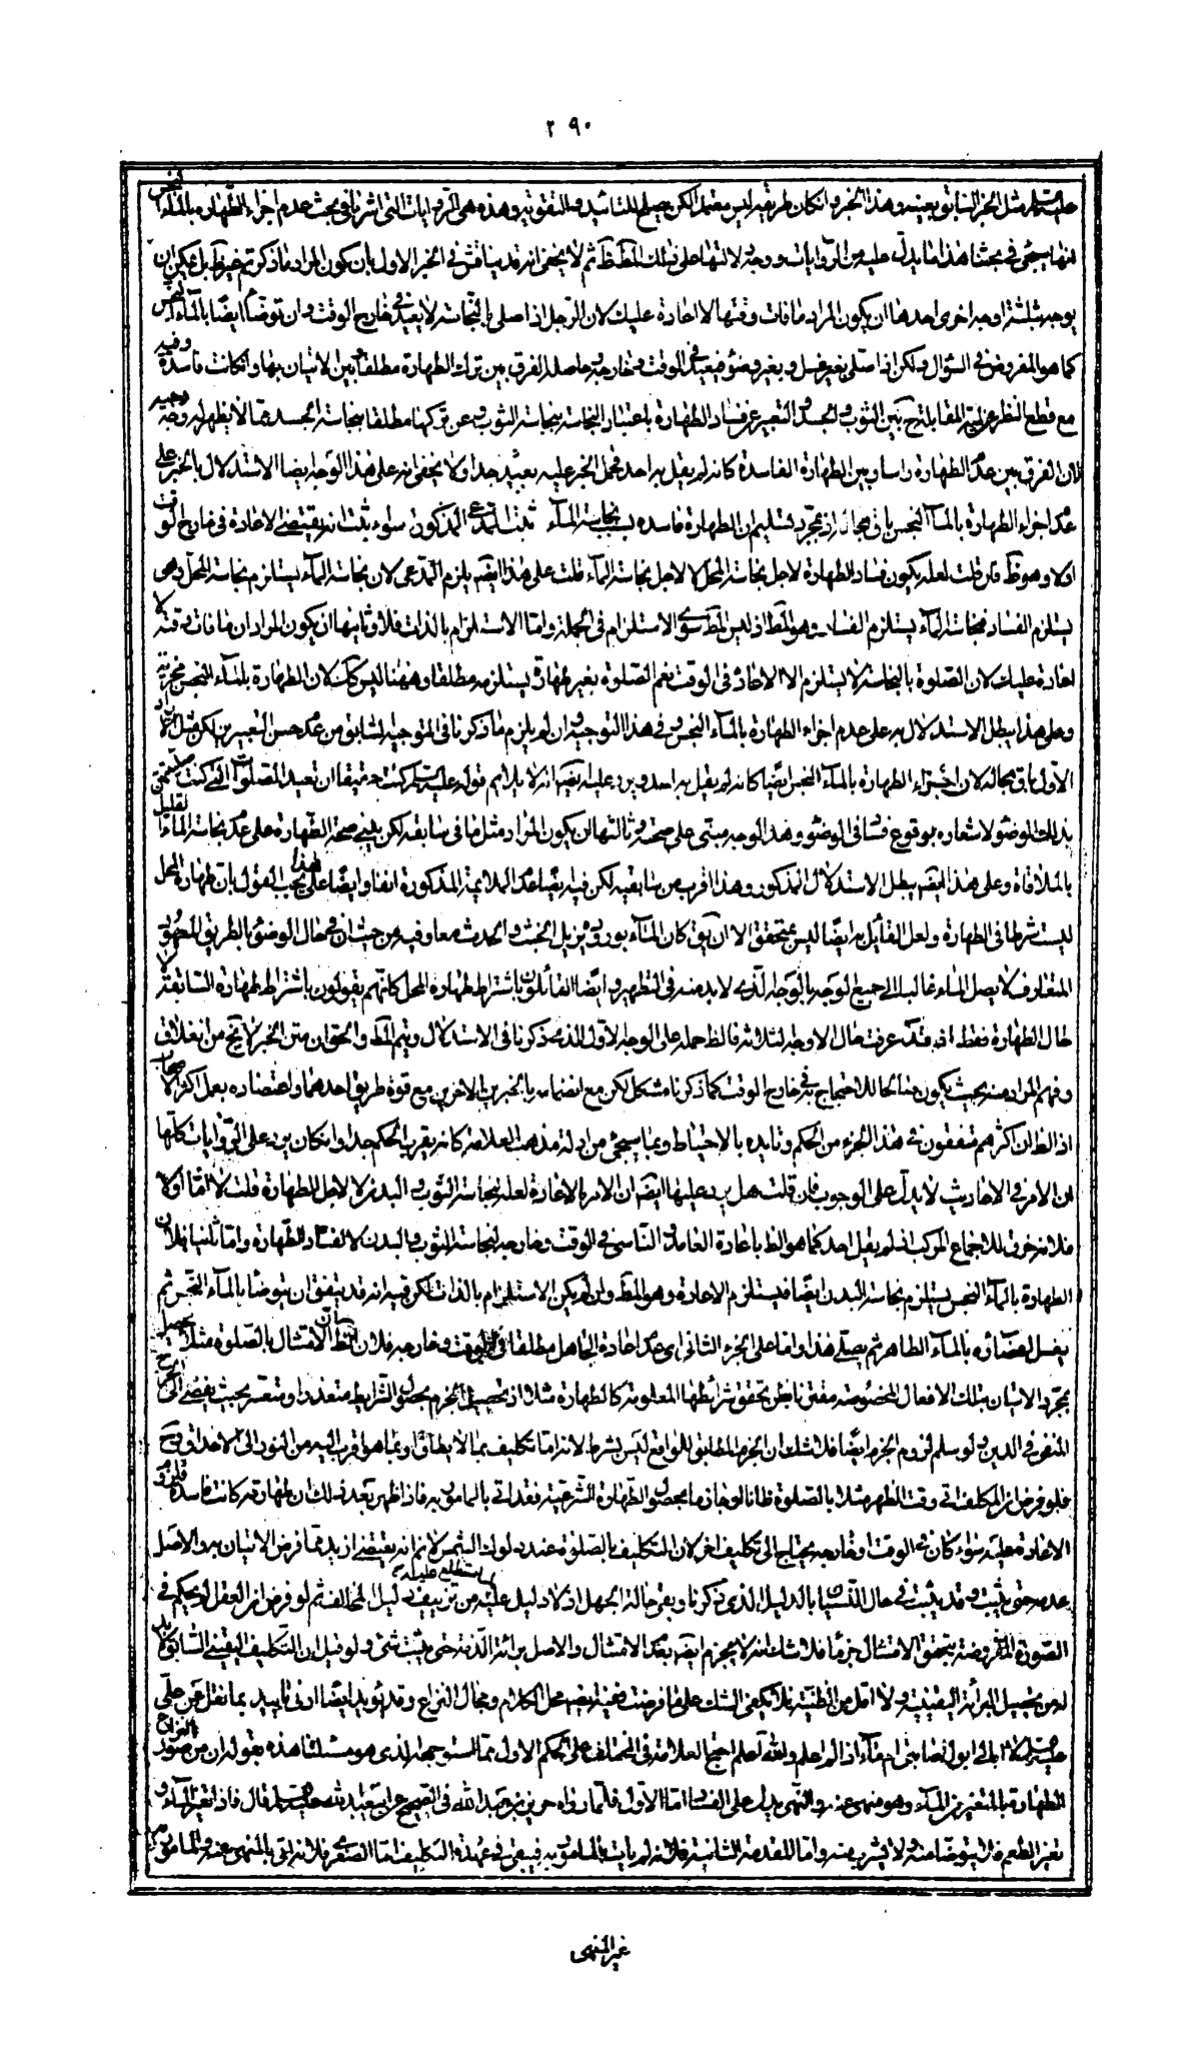 ٢٩٠
عليه السلام مثل الخبر السابق بعينه وهذا الخبر وان كان طريقه ليس بمعتمد لكن يصلح للتائيد والتقوية وهذه هي الروايات التي اشرنا في بحث عدم اجزاء الطهارة بالماء النجس
انها سيجئ في بحثنا هذا ما يدل عليه من الروايات ووجه دلالتها على ذلك ظ ثم لا يخفى انه قد يناقش في الخبر الاول بان كون المراد ما ذكرتم غير ظ بل يمكن ان
يوجه بثلثة اوجه اخرى احدها ان يكون المراد ما فات وقتها لا اعادة عليك لان الرجل اذا صلى بالنجاسة لا يعيد في خارج الوقت وان توضأ ايضا بالماء النجس
كما هو المفروض في السؤال ولكن اذا صلى بغير غسل وبغير وضوء فيعيد في الوقت وخارجه وحاصله الفرق بين ترك الطهارة مطلقا وبين الاتيان بها وان كانت فاسدة وفيه
مع قطع النظر عن المقابلة بين الثوب والجسد والتعبير عن فساد الطهارة باعتبار النجاسة بنجاسة الثوب وعن تركها مطلقا بنجاسة الجسد مما لا يظهر له وجه وجيه
لان الفرق بين عدم الطهارة راسا وبين الطهارة الفاسدة كانه لم يقل به احد فحمل الخبر عليه بعيد جدا ولا يخفى انه على هذا الوجه ايضا الاستدلال بالخبر على
عدم اجزاء الطهارة بالماء النجس باق بحاله اذ بمجرد تسليم ان الطهارة فاسدة بسبب نجاسة الماء ثبت المدعى المذكور سواء ثبت انه يقتضي الاعادة في خارج الوقت
او لا وهو ظ فان قلت لعله يكون فساد الطهارة لاجل نجاسة المحل لا لاجل نجاسة الماء قلت على هذا ايضا يلزم المدعى لان نجاسة الماء يستلزم نجاسة المحل وهي
يستلزم الفساد فنجاسة الماء يستلزم الفساد وهو المط اذ ليس المط سوى الاستلزام في الجملة واما الاستلزام بالذات فلا وثانيها ان يكون المراد ان ما فات وقته لا
اعادة عليك لان الصلوة بالنجاسة لا يستلزم الا الاعادة في الوقت نعم الصلوة بغير طهارة يستلزمه مطلقا وههنا ليس كك لان الطهارة بالماء النجس مجزية
وعلى هذا يبطل الاستدلال به على عدم اجزاء الطهارة بالماء النجس وفي هذا التوجيه وان لم يلزم ما ذكرنا في التوجيه السابق من عدم حسن التعبيرين لكن مثل الايراد
الاول باق بحاله لان اجزاء الطهارة بالماء النجس ايضا كانه لم يقل به احد ويرد عليه ايضا انه لا يلايم قوله عليه السلام كنت حقيقا ان تعيد الصلوات التي كنت صليتهن
بذلك الوضوء لاشعاره بوقوع فساد في الوضوء وهذا الوجه مبني على صحة وثالثها ان يكون المراد مثل ما في سابقه لكن يبنى صحة الطهارة على عدم نجاسة الماء القليل
بالملاقاة وعلى هذا ايضا يبطل الاستدلال المذكور وهذا اقرب من سابقيه لكن فيه ايضا عدم الملائمة المذكورة انفا وايضا على هذا يجب القول بان طهارة المحل
ليست شرطا في الطهارة ولعل القائل به ايضا ليس بمتحقق الا ان يق كان الماء بوروده يزيل الخبث والحدث معا وفيه من حيث ان في حال الوضوء بالطريق المعهود
المتعارف لا يصل الماء غالبا الى جميع الوجه بالوجه الذي لا بد منه في التطهير وايضا القائلون باشتراط طهارة المحل كانهم يقولون باشتراط طهارة السابقة لا
حال الطهارة فقط اذا قد عرفت حال الاوجه الثلاثة فالظ حمله على الوجه الاول الذي ذكرنا في الاستدلال ويتم المط والحق ان متن الخبر لا يخ من اغلاق
وفهم المراد منه بحيث يكون صالحا للاحتجاج به في خارج الوقت كما ذكرنا مشكل لكن مع انضمامه بالخبرين الاخرين مع قوة طريق احدهما واعتضاده بعمل اكثر الاصحاب
اذ الظ ان اكثرهم متفقون في هذا الجزء من الحكم وتايده بالاحتياط وبما سيجئ من ادلة مذهب العلامة كانه يقرب الحكم جدا وان كان يرد على الروايات كلها
ان الامر في الاحاديث لا يدل على الوجوب فان قلت هل يرد عليها ايضا ان الامر بالاعادة لعله لنجاسة الثوب والبدن لا لاجل الطهارة قلت لا اما اولا
فلانه خرق للاجماع المركب اذ لم يقل احد كما هو الظ باعادة العامد والناسي في الوقت وخارجه لنجاسة الثوب والبدن لا لفساد الطهارة واما ثانيا فلان
الطهارة بالماء النجس يستلزم نجاسة البدن ايضا فيستلزم الاعادة وهو المط وان لم يكن الاستلزام بالذات لكن فيه انه قد يتفق ان يتوضا بالماء النجس ثم
يغسل اعضائه بالماء الطاهر ثم يصلي هذا واما على الجزء الثاني اي عدم اعادة الجاهل مطلقا في الوقت وخارجه فلان الظ ان الامتثال بالصلوة مثلا يحصل
بمجرد الاتيان بتلك الافعال المخصوصة مقترنا بظن تحقق شرائطها المعلومة كالطهارة مثلا اذ تحصيل الجزم بحصول الشرايط متعذر او متعسر بحيث يفضي الى الحرج
المنفي في الدين ولو سلم لزوم الجزم ايضا فلا شك ان الجزم المطابق للواقع ليس بشرط لانه اما تكليف بما لا يطاق او بما هو اقرب اليه من
فلو فرض ان المكلف اتى وقت الظهر مثلا بالصلوة ظانا او جازما بحصول الطهارة الشرعية فقد اتى بالمامور به فاذا ظهر بعد ذلك ان طهارته كانت فاسدة فلزوم
الاعادة عليه سواء كان في الوقت او خارجه يحتاج الى تكليف اخر لان التكليف بالصلوة عند دلوك الشمس لا نم انه يقتضي ازيد مما فرض الاتيان به والاصل
عدمه حتى يثبت وقد يثبت في حال النسيان بالدليل الذي ذكرنا وبقي حالة الجهل اذ لا دليل عليه من تزييف دليل المخالف ثم لو فرض ان العقل لم يحكم في
ستطلع عليه
الصورة المفروضة بتحقق الامتثال جزما فلا شك انه لا يجزم ايضا بعدم الامتثال والاصل برائة الذمة حتى يثبت شئ ولو قيل ان التكليف اليقيني السابق لا بد
له من تحصيل البرائة اليقينية ولا اقل من الظنية فلا يكفي الشك على ما فرضت ففيه ايضا محل الكلام ومجال النزاع وقد يؤيد ايضا ادنى تاييد بما نقل عن علي
عليه السلام ما ابالي ابول اصابني ام ماء اذا لم اعلم والله تعالى يعلم احتج العلامة في المختلف على الحكم الاول مما استوجهه الذي هو مسئلتنا هذه بقوله ان من صور النزاع
الطهارة بالمتغير من الماء وهو منهي عنه والنهي يدل على الفساد اما الاول فلما رواه حريز بن عبد الله في الصحيح عن ابي عبد الله عليه السلام قال فاذا تغير الماء و
تغير الطعم فلا تتوضا منه ولا تشرب منه واما المقدمة الثانية فلانه لم يات بالمامور به فيبقى في عهدة التكليف اما الصغرى فلانه اتى بالمنهي عنه والمامور
غير المنهى